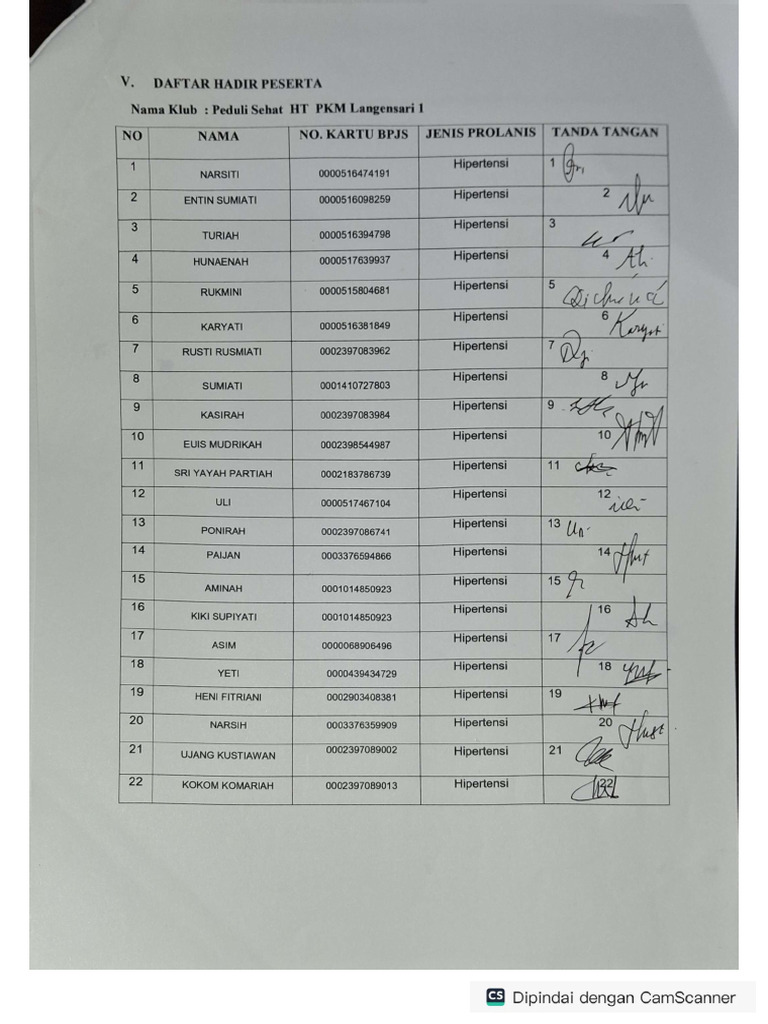 V. DAFTAR HADIR PESERTA
Nama Klub : Peduli Sehat HT PKM Langensari 1
NO NAMA NO. KARTU BPJS JENIS PROLANIS TANDA TANGAN
1 NARSITI 0000516474191 Hipertensi 1
2 ENTIN SUMIATI 0000516098259 Hipertensi 2
3 TURIAH 0000516394798 Hipertensi 3
4 HUNAENAH 0000517639937 Hipertensi 4
5 RUKMINI 0000515804681 Hipertensi 5
6 KARYATI 0000516381849 Hipertensi 6
7 RUSTI RUSMIATI 0002397083962 Hipertensi 7
8 SUMIATI 0001410727803 Hipertensi 8
9 KASIRAH 0002397083984 Hipertensi 9
10 EUIS MUDRIKAH 0002398544987 Hipertensi 10
11 SRI YAYAH PARTIAH 0002183786739 Hipertensi 11
12 ULI 0000517467104 Hipertensi 12
13 PONIRAH 0002397086741 Hipertensi 13
14 PAIJAN 0003376594866 Hipertensi 14
15 AMINAH 0001014850923 Hipertensi 15
16 KIKI SUPIYATI 0001014850923 Hipertensi 16
17 ASIM 0000068906496 Hipertensi 17
18 YETI 0000439434729 Hipertensi 18
19 HENI FITRIANI 0002903408381 Hipertensi 19
20 NARSIH 0003376359909 Hipertensi 20
21 UJANG KUSTIAWAN 0002397089002 Hipertensi 21
22 KOKOM KOMARIAH 0002397089013 Hipertensi 22
CS Dipindai dengan CamScanner